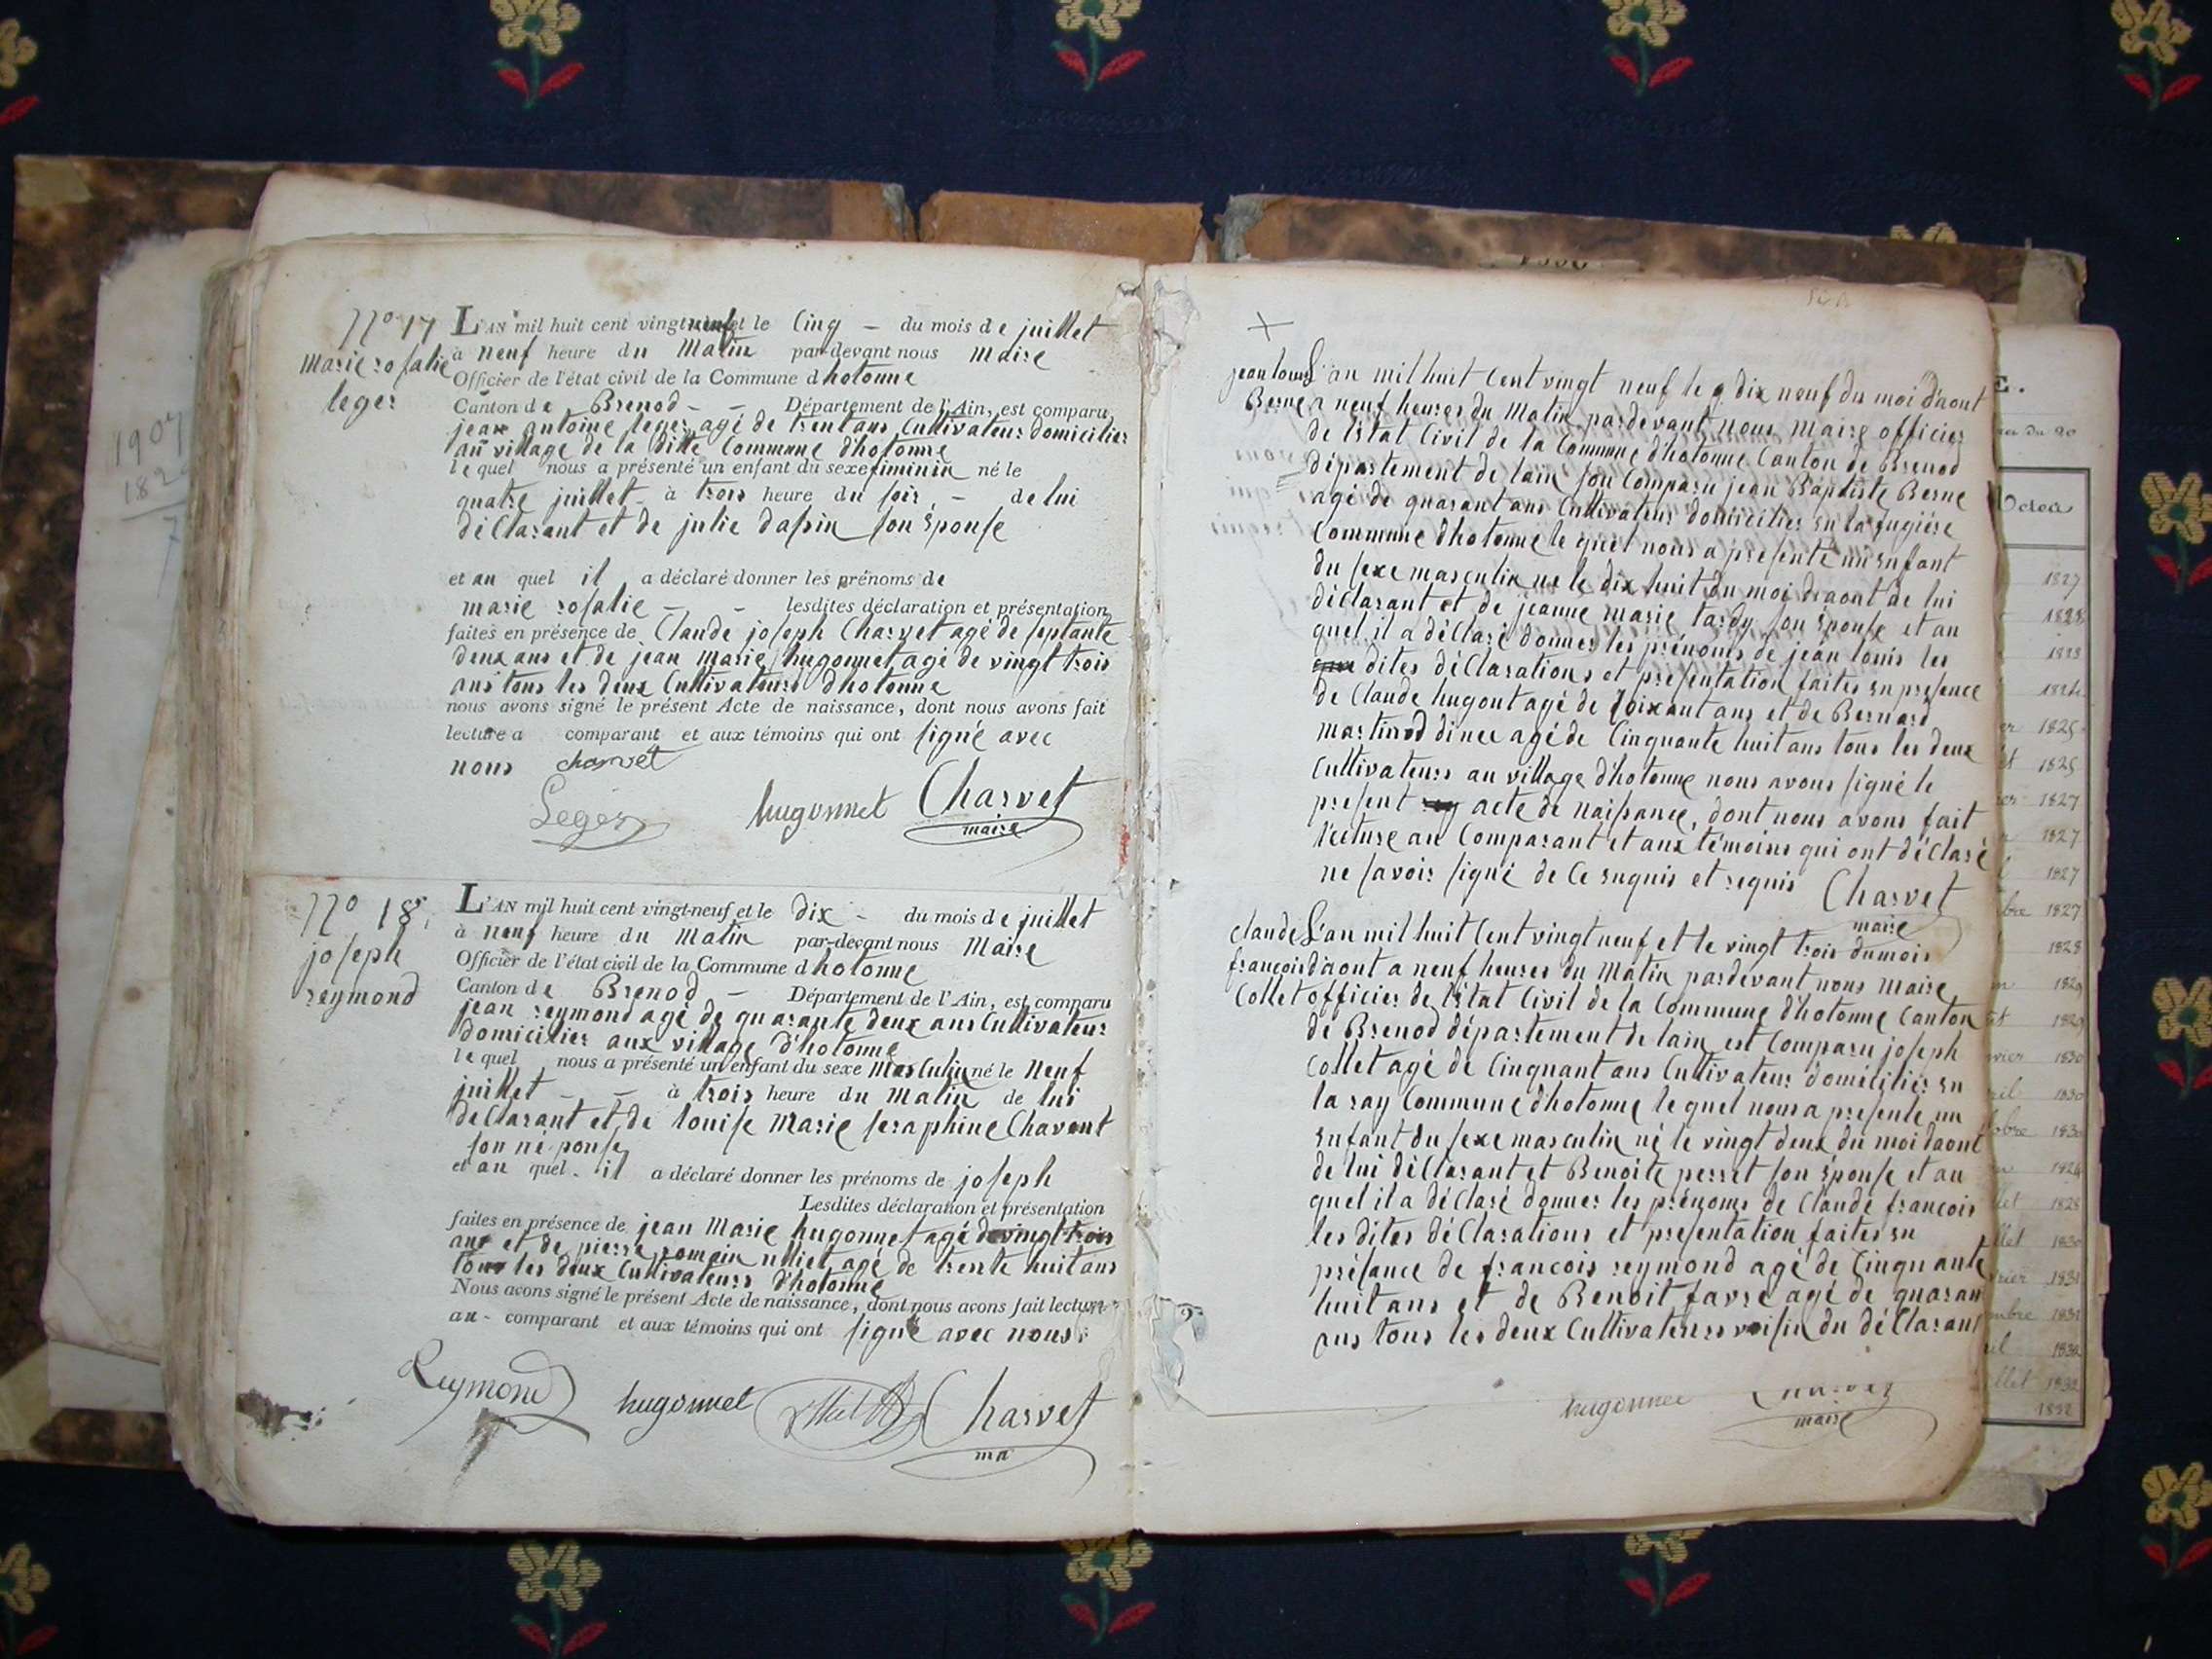 1907
182
7
N° 17
Marie rosalie
leger
L'AN mil huit cent vingt neuf et le Cinq - du mois de juillet
à neuf heure du Matin par-devant nous maire
Officier de l'état civil de la Commune d hotonne
Canton de Brenod - - Département de l'Ain, est comparu,
jean antoine leger agé de trent ans Cultivateur domicilier
au village de la ditte Commune d'hotonne
le quel nous a présenté un enfant du sexe fiminin né le
quatre juillet à trois heure du soir, - de lui
déClarant et de julie dapin son Épouse
et au quel il a déclaré donner les prénoms de
marie rosalie - - lesdites déclaration et présentation
faites en présence de Claude joseph Charvet agé de septante
deux ans et de jean marie hugonnet agé de vingt trois
ans tous les deux Cultivateurs d'hotonne
nous avons signé le présent Acte de naissance, dont nous avons fait
lecture a comparant et aux témoins qui ont signé avec
nous charvet
Leger hugonnet Charvet
maire
N° 18
joseph
reymond
L'AN mil huit cent vingt-neuf et le dix - du mois de juillet
à neuf heure du Matin par-devant nous Maire
Officier de l'état civil de la Commune d hotonne
Canton de Brenod - Département de l'Ain, est comparu
jean reymond agé de quarante deux ans Cultivateur
domicilier aux village d'hotonne
le quel nous a présenté un enfant du sexe Masculin né le Neuf
juillet - - à trois heure du Matin de lui
déClarant et de louise Marie seraphine Chavent
son né pouse
et au quel il a déclaré donner les prénoms de joseph
Lesdites déclaration et présentation
faites en présence de jean Marie hugonnet agé de vingt trois
ans et de pierre romain ulliet agé de trente huit ans
tous les deux Cultivateurs d'hotonne
Nous avons signé le présent Acte de naissance, dont nous avons fait lecture
au - comparant et aux témoins qui ont signé avec nous
Reymond hugonnet Charvet
ma
jean louis
Berne
L'an mil huit Cent vingt neuf le 9 dix neuf du moi d'aout
a neuf heures du Matin pardevant nous maire officier
de l'état Civil de la Commune d'hotonne Canton de Brenod
département de lain son Comparu jean Baptiste Berne
agé de quarant ans Cultivateur domicilier en la rugiére
Commune d'hotonne le quel nous a presenté un enfant
du sexe masculin né le dix huit du moi daout de lui
déclarant et de jeanne marie tardy son épouse et au
quel il a déClaré donner les prénoms de jean louis les
dites déClarations et presentation faites en presence
de Claude hugont agé de soixant ans et de Bernard
martinod dinee agé de Cinquante huit ans tous les deux
Cultivateurs au village d'hotonne nous avons signé le
present acte de naissance, dont nous avons fait
lecture au Comparant et aux témoins qui ont déClaré
ne savoir signé de Ce enquis et requis Charvet
maire
claude
francois
Collet
L'an mil huit Cent vingt neuf et le vingt trois du mois
daout a neuf heures du Matin pardevant nous maire
officier de l'état Civil de la Commune d'hotonne Canton
de Brenod département de lain est Comparu joseph
Collet agé de Cinquant ans Cultivateur domicilier en
la ray Commune d'hotonne le quel nous a presenté un
enfant du sexe masculin né le vingt deux du moi daout
de lui déClarant et Benoite perret son épouse et au
quel il a déClaré donner les prénoms de Claude francois
les dites déClarations et presentation faites en
présance de francois reymond agé de Cinquante
huit ans et de Benoit favre agé de quaran
ans tous les deux Cultivateurs voisin du déClarant
hugonnet Charvet
maire
E.
au 20
1827
1828
1824
1825
1825
1827
1827
1827
bre 1827
1828
1829
1829
vrier 1830
ril 1830
tobre 1830
let 1828
llet 1830
vrier 1831
mbre 1831
1832
llet 1832
1832